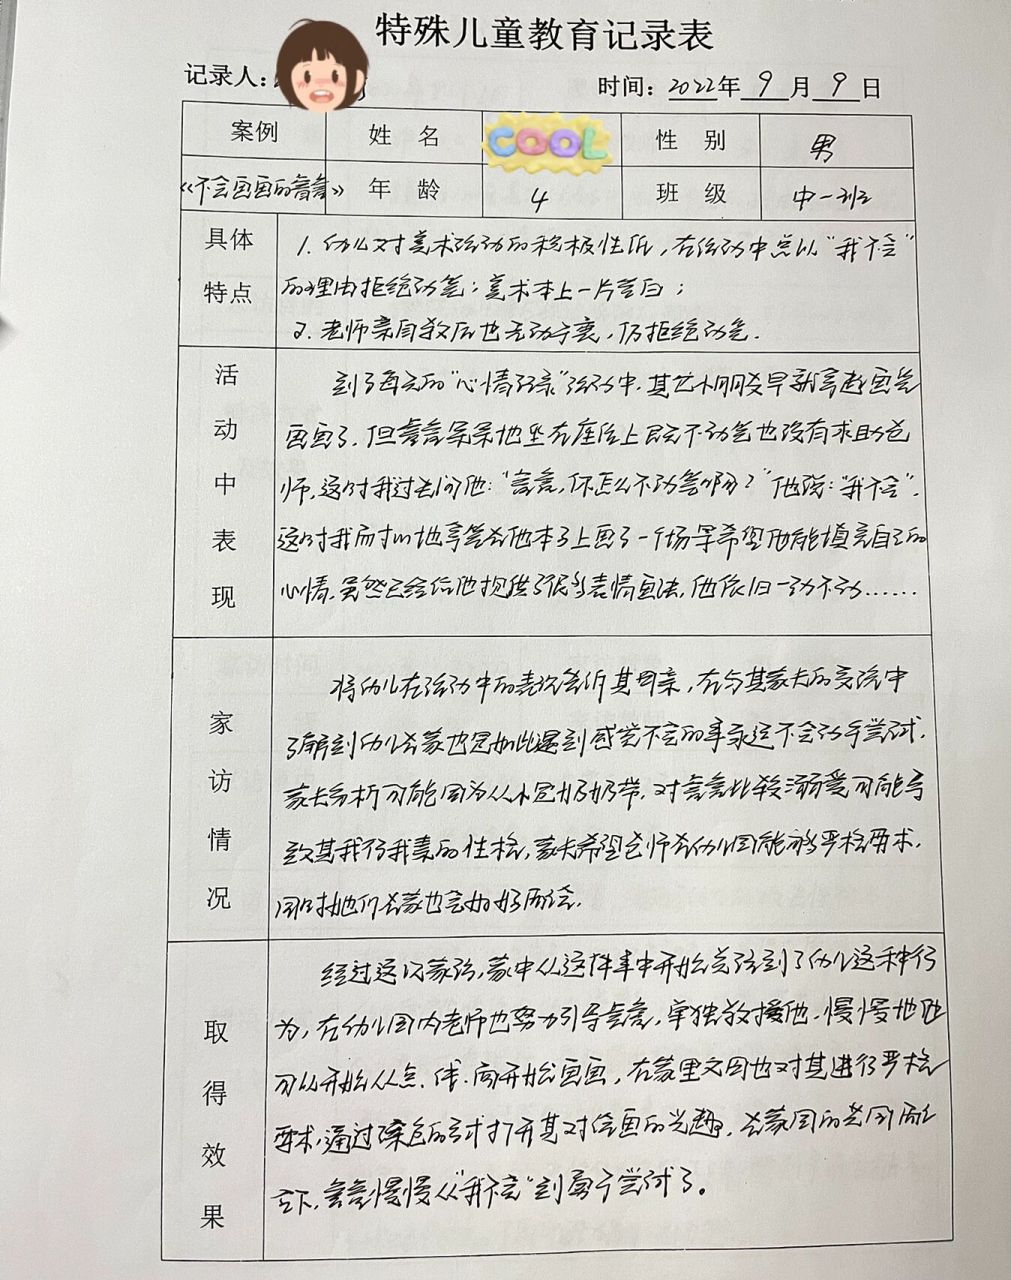 特殊儿童教育记录表
记录人：
时间：2022年9月9日
案例 姓名 COOL 性别 男
《不会画画的鑫鑫》 年龄 4 班级 中一班
具体特点
1. 幼儿对美术活动的积极性低，在活动中总以“我不会”
的理由拒绝动笔；美术本上一片空白；
2. 老师亲自教后也无动于衷，仍拒绝动笔.
活动中表现
到了每天的“心情记录”活动中，其它小朋友早就拿起画笔
画画了，但鑫鑫呆呆地坐在座位上既不动笔也没有求助老
师，这时我过去问他：“鑫鑫，你怎么不动笔啊？”他说：“我不会”.
这时我耐心地拿笔在他本子上画了一个场景希望他能填充自己的
心情，虽然已经给他提供了很多表情画法，他依旧一动不动……
家访情况
将幼儿在活动中的表现告诉其母亲，在与其家长的交流中
了解到幼儿在家也是如此遇到感觉不会的事永远不会动手尝试.
家长分析可能因为从小是奶奶带，对鑫鑫比较溺爱可能导
致其我行我素的性格，家长希望老师在幼儿园能够严格要求，
同时他们在家也会加以配合.
取得效果
经过这次家访，家中从这件事中开始关注到了幼儿这种行
为，在幼儿园内老师也努力引导鑫鑫，单独教授他，慢慢地他
可以开始从点、线、面开始画画，在家里父母也对其进行严格
要求，通过涂色的方式打开其对绘画的兴趣，在家园的共同配
合下，鑫鑫慢慢从“我不会”到勇于尝试了。